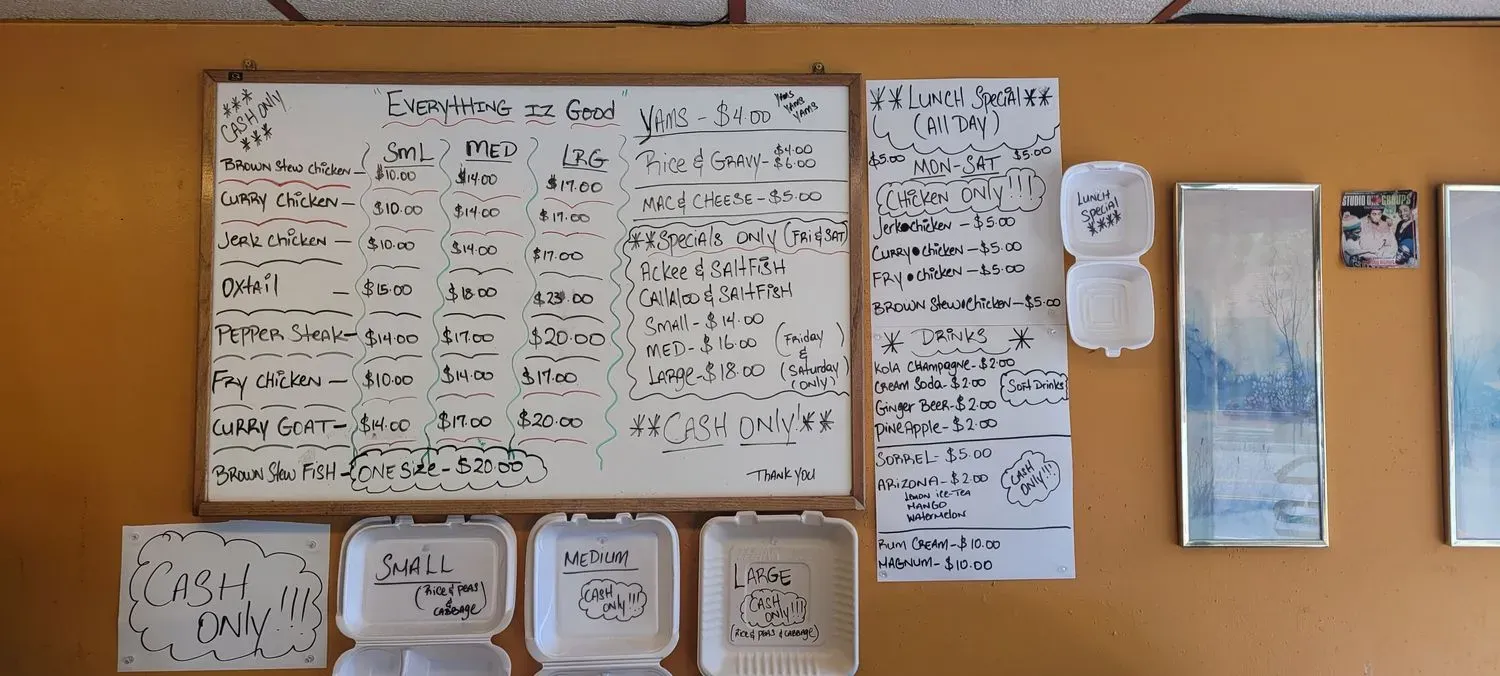 *** CASH ONLY ***
"EVERYTHING IZ GOOD"
SML MED LRG
BROWN STEW CHICKEN — $10.00 $14.00 $17.00
CURRY CHICKEN — $10.00 $14.00 $17.00
JERK CHICKEN — $10.00 $14.00 $17.00
OXTAIL — $15.00 $18.00 $23.00
PEPPER STEAK — $14.00 $17.00 $20.00
FRY CHICKEN — $10.00 $14.00 $17.00
CURRY GOAT — $14.00 $17.00 $20.00
BROWN STEW FISH — ONE SIZE - $20.00
YAMS - $4.00
YAMS
YAMS
YAMS
RICE & GRAVY - $4.00
$6.00
MAC & CHEESE - $5.00
**SPECIALS ONLY (FRI & SAT)
ACKEE & SALTFISH
CALLALOO & SALTFISH
SMALL - $14.00
MED - $16.00
LARGE - $18.00
(FRIDAY
&
SATURDAY)
(ONLY)
**CASH ONLY!**
THANK YOU
**LUNCH SPECIAL**
(ALL DAY)
$5.00 MON-SAT $5.00
CHICKEN ONLY!!!
JERK•CHICKEN - $5.00
CURRY•CHICKEN - $5.00
FRY•CHICKEN - $5.00
BROWN STEW•CHICKEN - $5.00
* DRINKS *
KOLA CHAMPAGNE - $2.00
CREAM SODA - $2.00
GINGER BEER - $2.00
PINEAPPLE - $2.00
SOFT DRINKS
SORREL - $5.00
ARIZONA - $2.00
LEMON ICE-TEA
MANGO
WATERMELON
CASH
ONLY!!!
RUM CREAM - $10.00
MAGNUM - $10.00
LUNCH
SPECIAL
****
STUDIO ONE GROUPS
CASH
ONLY!!!
SMALL
(RICE & PEAS
&
CABBAGE)
MEDIUM
CASH
ONLY!!!
LARGE
CASH
ONLY!!!
(RICE & PEAS & CABBAGE)